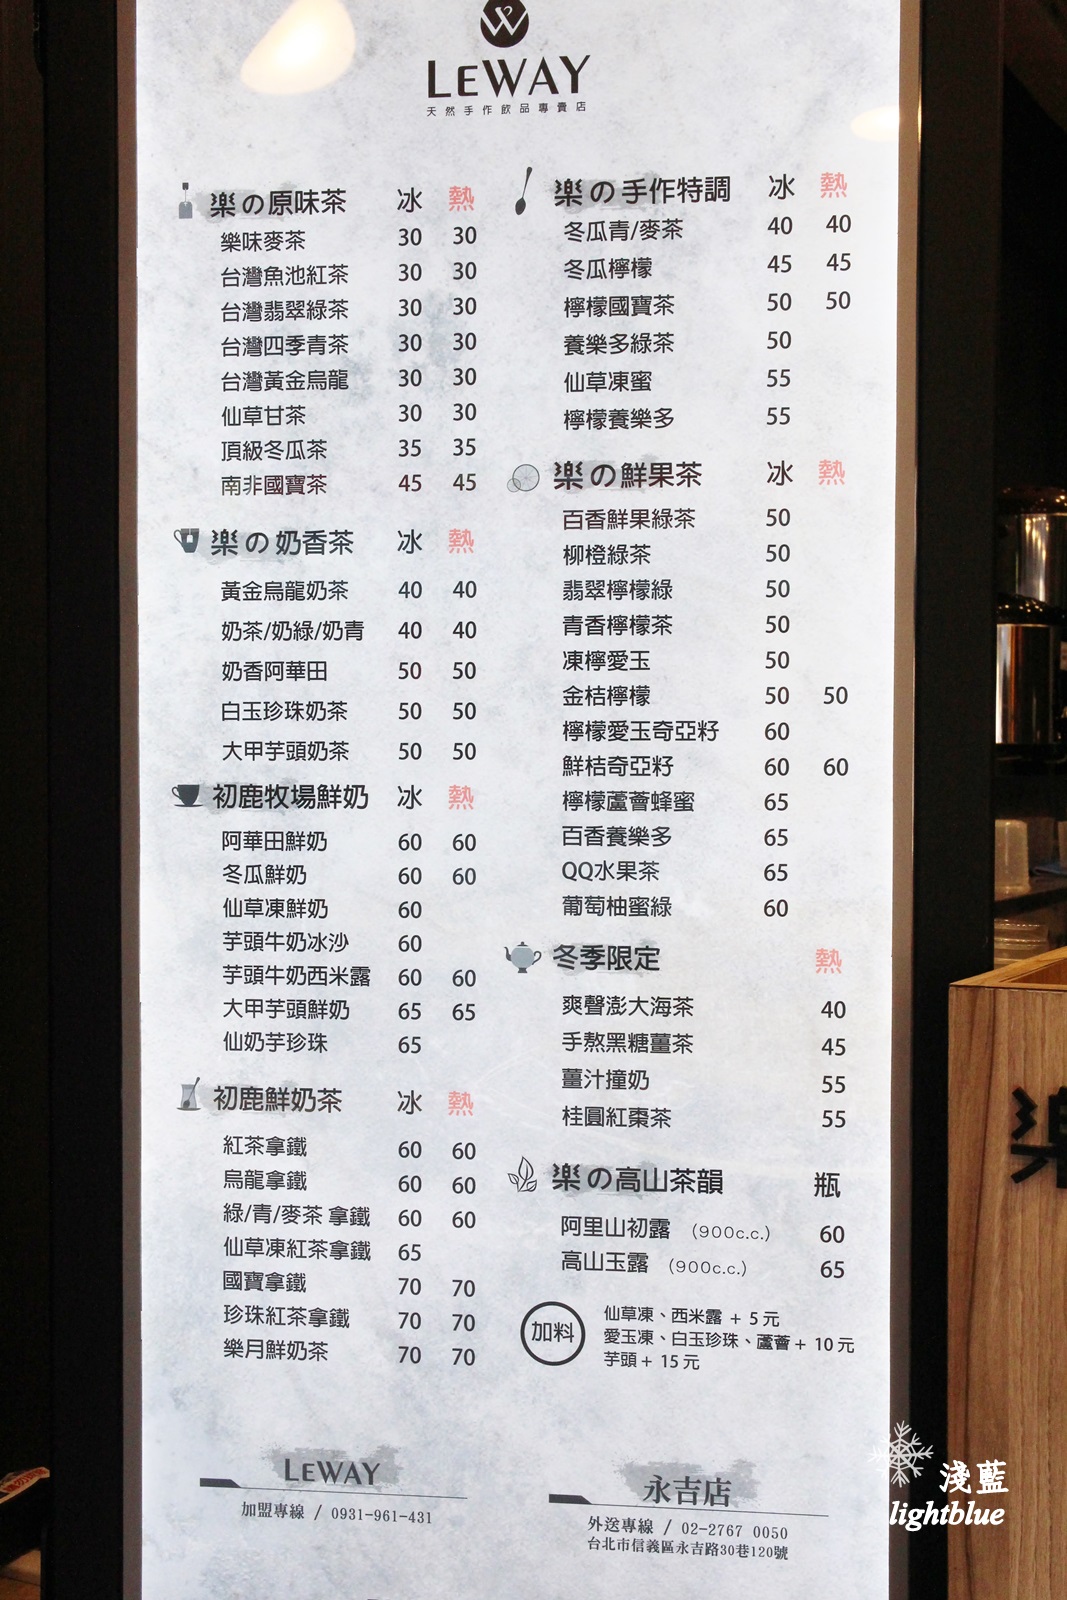 LEWAY
天然手作飲品專賣店
楽の原味茶 冰 熱
樂味麥茶 30 30
台灣魚池紅茶 30 30
台灣翡翠綠茶 30 30
台灣四季青茶 30 30
台灣黃金烏龍 30 30
仙草甘茶 30 30
頂級冬瓜茶 35 35
南非國寶茶 45 45
楽の奶香茶 冰 熱
黃金烏龍奶茶 40 40
奶茶/奶綠/奶青 40 40
奶香阿華田 50 50
白玉珍珠奶茶 50 50
大甲芋頭奶茶 50 50
初鹿牧場鮮奶 冰 熱
阿華田鮮奶 60 60
冬瓜鮮奶 60 60
仙草凍鮮奶 60
芋頭牛奶冰沙 60
芋頭牛奶西米露 60 60
大甲芋頭鮮奶 65 65
仙奶芋珍珠 65
初鹿鮮奶茶 冰 熱
紅茶拿鐵 60 60
烏龍拿鐵 60 60
綠/青/麥茶 拿鐵 60 60
仙草凍紅茶拿鐵 65
國寶拿鐵 70 70
珍珠紅茶拿鐵 70 70
樂月鮮奶茶 70 70
楽の手作特調 冰 熱
冬瓜青/麥茶 40 40
冬瓜檸檬 45 45
檸檬國寶茶 50 50
養樂多綠茶 50
仙草凍蜜 55
檸檬養樂多 55
楽の鮮果茶 冰 熱
百香鮮果綠茶 50
柳橙綠茶 50
翡翠檸檬綠 50
青香檸檬茶 50
凍檸愛玉 50
金桔檸檬 50 50
檸檬愛玉奇亞籽 60
鮮桔奇亞籽 60 60
檸檬蘆薈蜂蜜 65
百香養樂多 65
QQ水果茶 65
葡萄柚蜜綠 60
冬季限定 熱
爽聲澎大海茶 40
手熬黑糖薑茶 45
薑汁撞奶 55
桂圓紅棗茶 55
楽の高山茶韻 瓶
阿里山初露 (900c.c.) 60
高山玉露 (900c.c.) 65
加料
仙草凍、西米露 + 5元
愛玉凍、白玉珍珠、蘆薈 + 10元
芋頭 + 15元
LEWAY
加盟專線 / 0931-961-431
永吉店
外送專線 / 02-2767 0050
台北市信義區永吉路30巷120號
楽
淺藍
lightblue